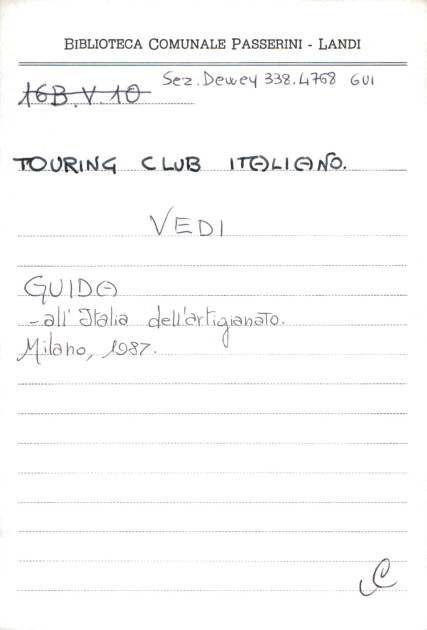 BIBLIOTECA COMUNALE PASSERINI - LANDI
Sez. Dewey 338.4768 GUI
16B.V.10
TOURING CLUB ITALIANO.
VEDI
GUIDA
- all'Italia dell'artigianato.
Milano, 1987.